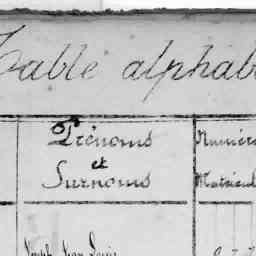 Table alphab
Prénoms
et
Surnoms
Numéro
Matricul
Joseph Jean Louis